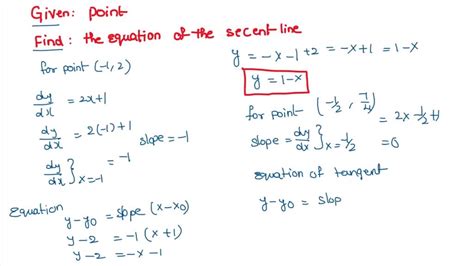 Given: point
Find: the equation of the secent line
for point (-1, 2)
dy/dx = 2x+1
dy/dx = 2(-1)+1
dy/dx}x=-1 = -1
slope = -1
Equation
y-y0 = slope (x-x0)
y-2 = -1(x+1)
y-2 = -x-1
y = -x-1+2 = -x+1 = 1-x
y = 1-x
for point (-1/2, 7/4)
slope = dy/dx}x=-1/2 = 2x-1/2+1
=0
equation of tangent
y-y0 = slop